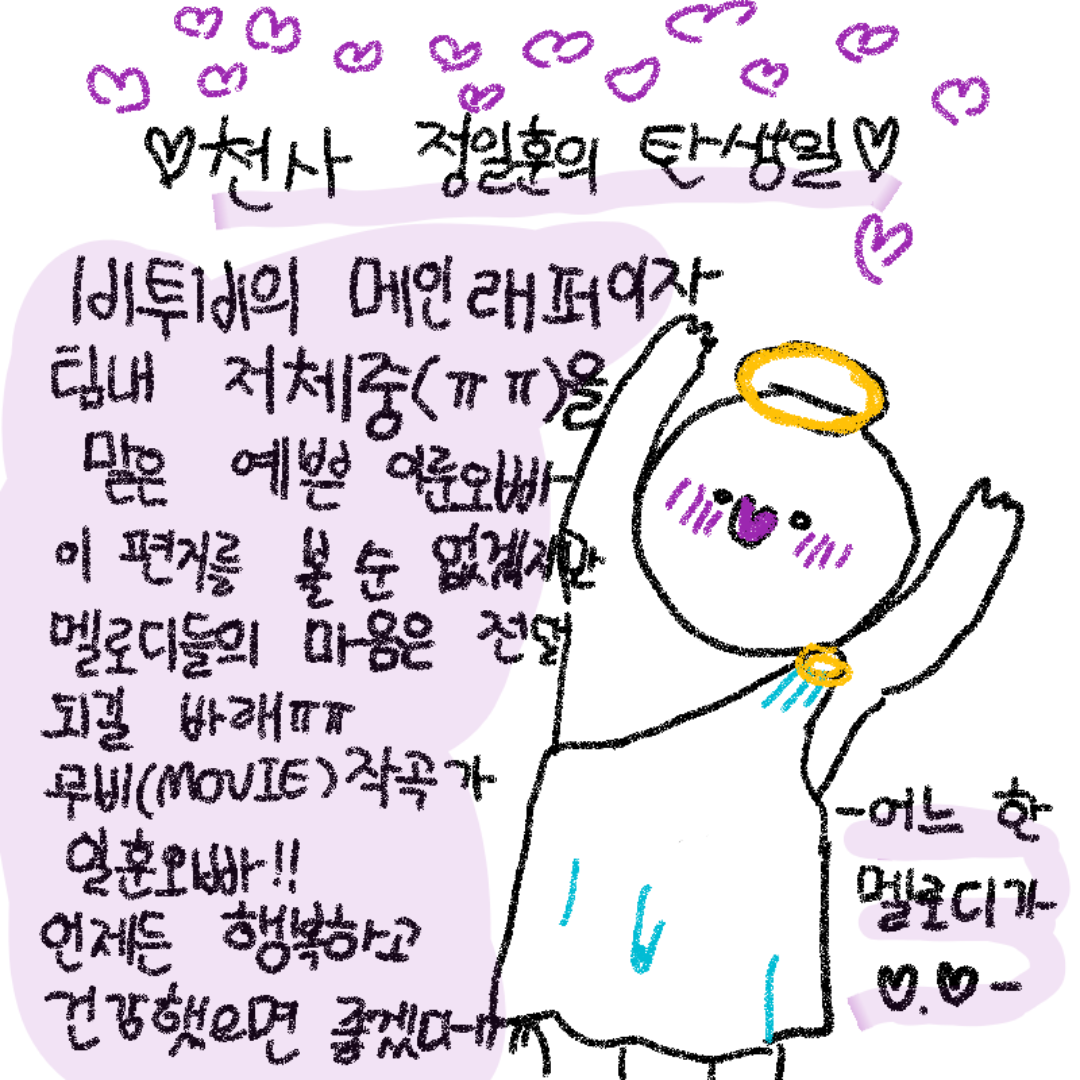 ♡천사 정일훈의 탄생일♡
비투비의 메인 래퍼이자
팀내 저체중(ㅠㅠ)을
맡은 예쁜 이룬오빠
이 편지를 볼 순 없겠지만
멜로디들의 마음은 전달
되길 바래ㅠㅠ
무비(MOVIE)작곡가
일훈오빠!!
언제든 행복하고
건강했으면 좋겠다ㅠㅠ
-어느 한
멜로디가
♡.♡-